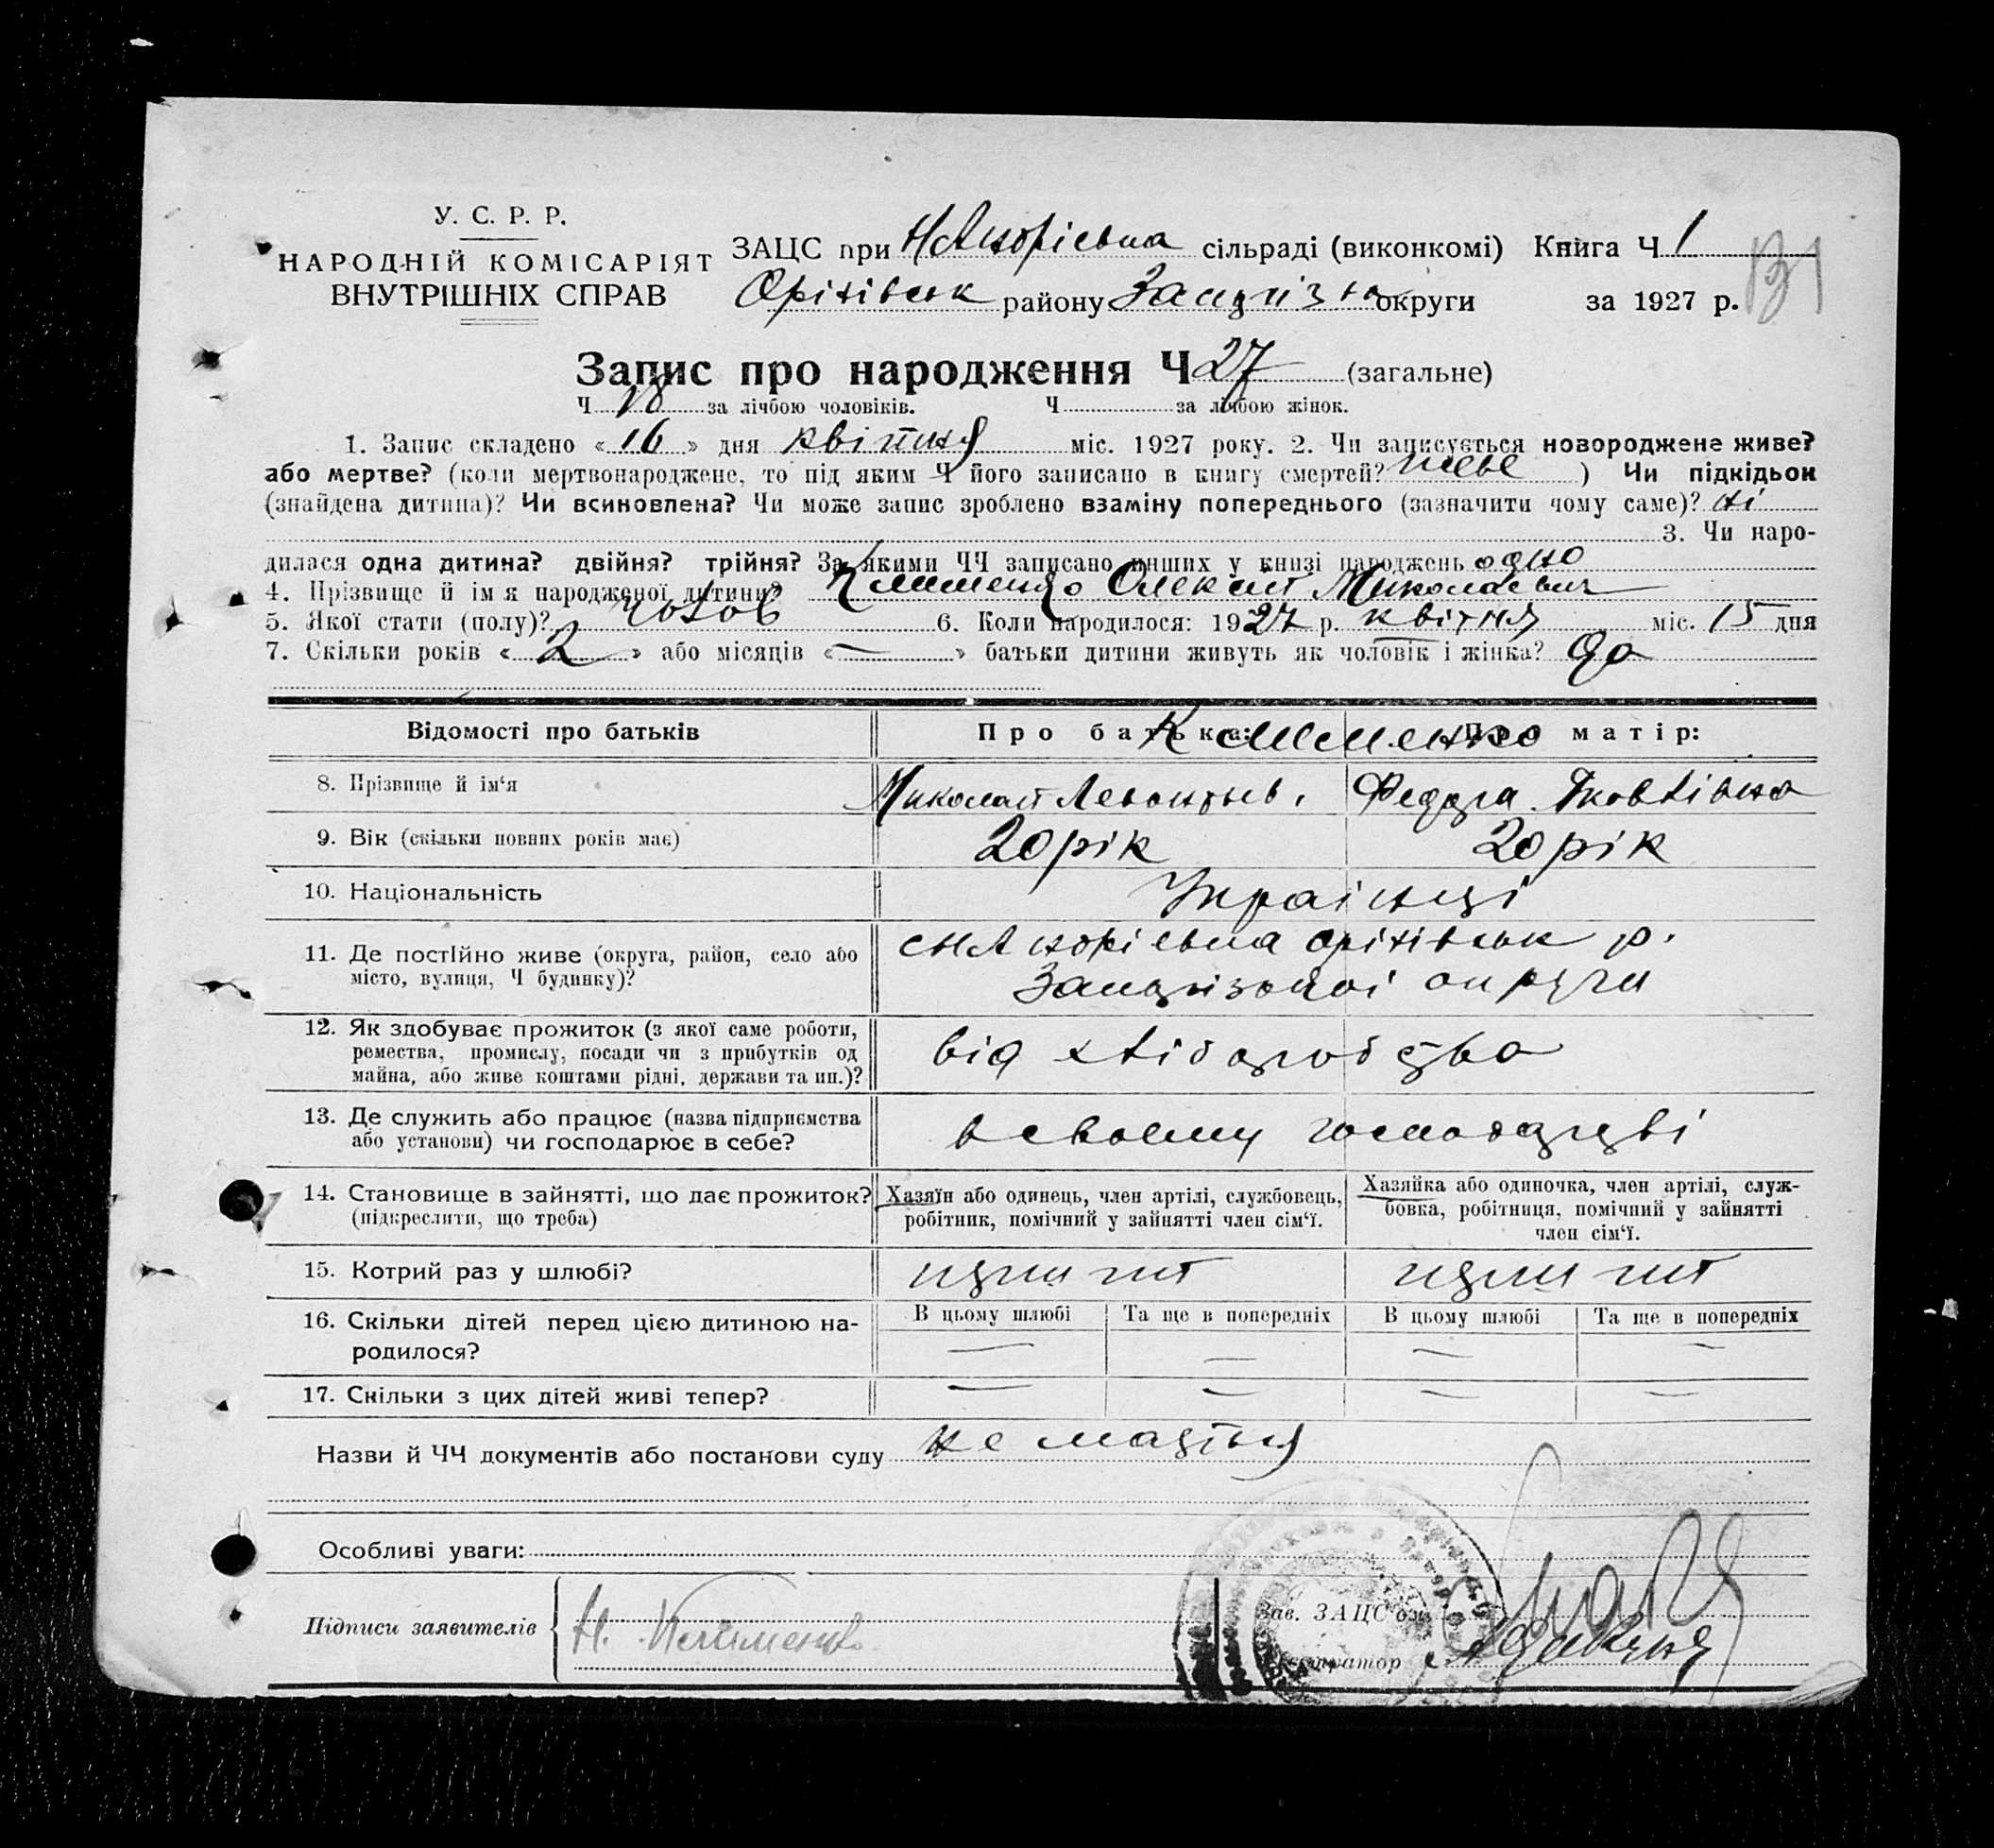 У. С. Р. Р.
НАРОДНІЙ КОМІСАРІЯТ
ВНУТРІШНІХ СПРАВ
ЗАЦС при сільраді (виконкомі) Книга Ч 1
Оріхівськ району Запоріз округи за 1927 р.
Запис про народження Ч 27 (загальне)
Ч 18 за лічбою чоловіків. Ч за лічбою жінок.
1. Запис складено « 16 » дня квітня міс. 1927 року. 2. Чи записується новороджене живе?
або мертве? (коли мертвонароджене, то під яким Ч його записано в книгу смертей? ) Чи підкідьок
(знайдена дитина)? Чи всиновлена? Чи може запис зроблено взаміну попереднього (зазначити чому саме)? ні
3. Чи наро-
дилася одна дитина? двійня? трійня? За якими ЧЧ записано инших у книзі народжень одно
4. Прізвище й ім'я народженої дитини? Клименко Олексій Миколаевич
5. Якої стати (полу)? чолов 6. Коли народилося: 1927 р. квітня міс. 15 дня
7. Скільки років « 2 » або місяців « — » батьки дитини живуть як чоловік і жінка? да
Відомості про батьків Про батька: Про матір:
Клименко
8. Прізвище й ім'я Миколай Федора Яковлівна
9. Вік (скільки повних років має) 20 рік 20 рік
10. Національність Українці
11. Де постійно живе (округа, район, село або
місто, вулиця, Ч будинку)?
Оріхівськ р.
Запорізької округи
12. Як здобуває прожиток (з якої саме роботи,
ремества, промислу, посади чи з прибутків од
майна, або живе коштами рідні, держави та ин.)?
від хліборобства
13. Де служить або працює (назва підприємства
або установи) чи господарює в себе?
в своєму господарстві
14. Становище в зайнятті, що дає прожиток?
(підкреслити, що треба)
Хазяїн або одинець, член артілі, службовець,
робітник, помічний у зайнятті член сім'ї.
Хазяйка або одиночка, член артілі, служ-
бовка, робітниця, помічний у зайнятті
член сім'ї.
15. Котрий раз у шлюбі?
16. Скільки дітей перед цією дитиною на-
родилося?
В цьому шлюбі Та ще в попередніх В цьому шлюбі Та ще в попередніх
— — — —
17. Скільки з цих дітей живі тепер? — — — —
Назви й ЧЧ документів або постанови суду
Особливі уваги:
Підписи заявителів Н. Клименко
Зав. ЗАЦС'ом
Реєстратор